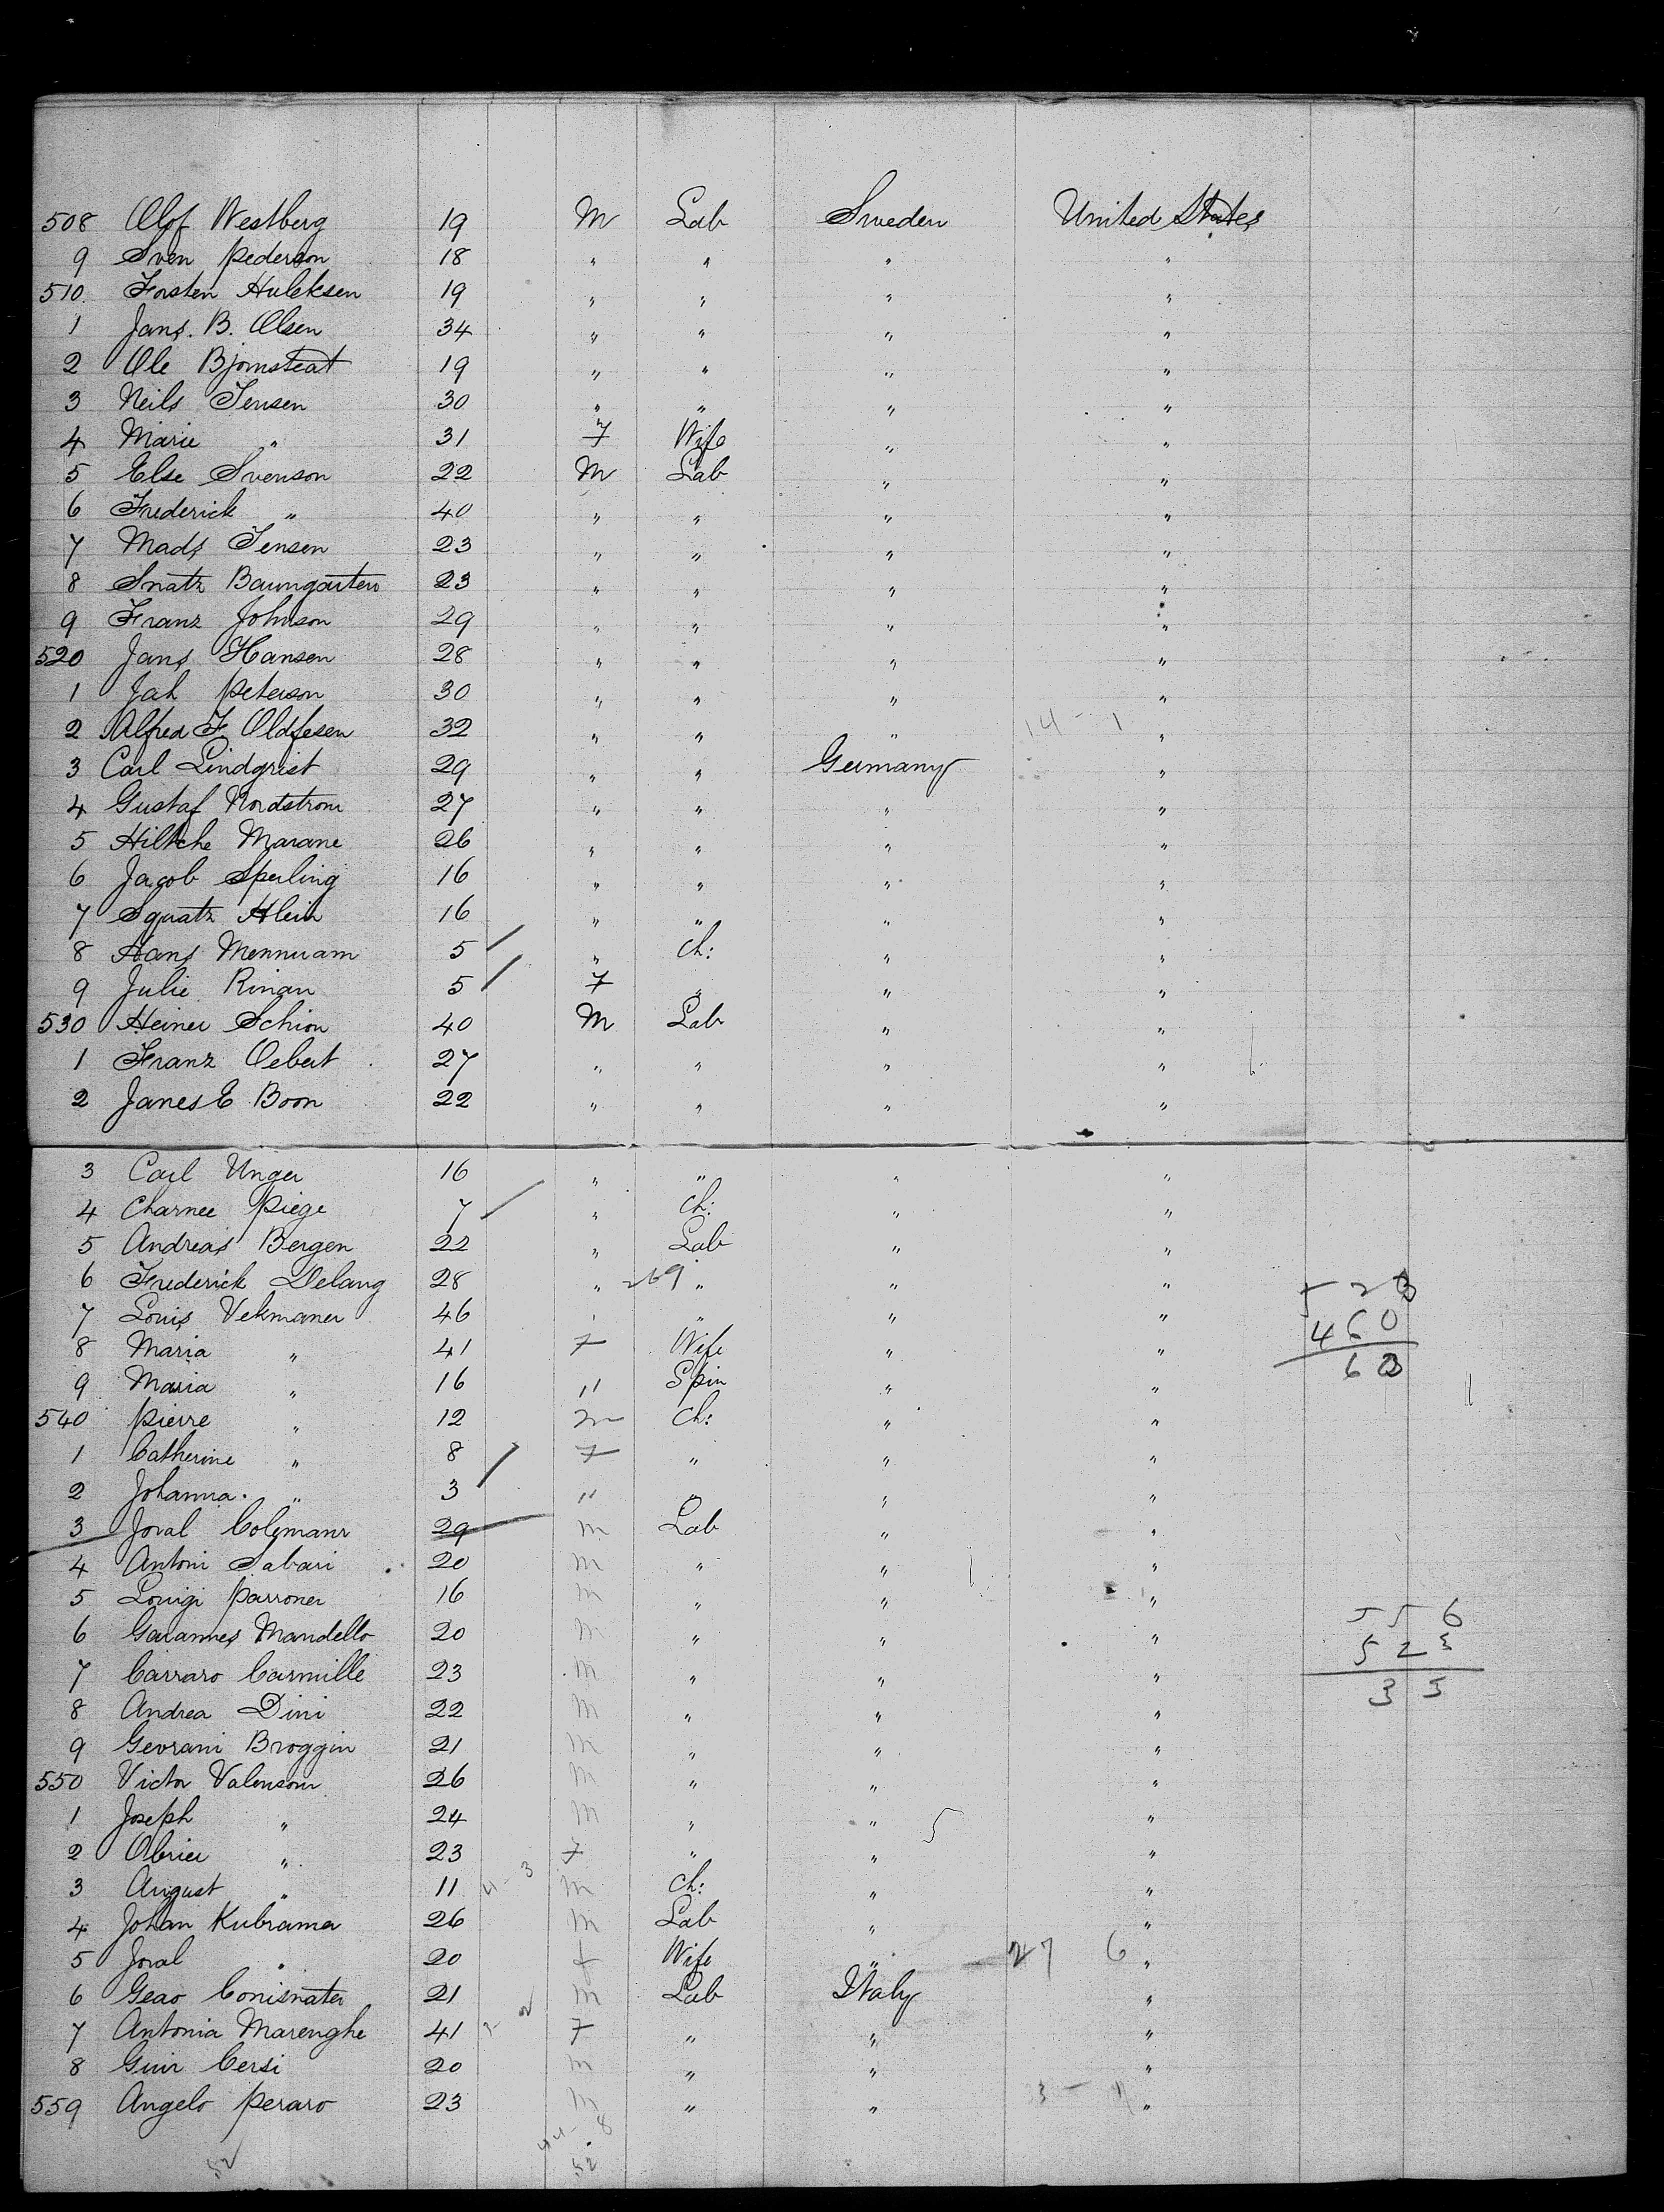 508 Olof Westberg 19 M Lab Sweden United States
9 Sven Pederson 18 " " " "
510 Forsten Huleksen 19 " " " "
1 Jans. B. Olsen 34 " " " "
2 Ole Bjornsteat 19 " " " "
3 Neils Jensen 30 " " " "
4 Marie " 31 F Wife " "
5 Else Svenson 22 M Lab " "
6 Frederick " 40 " " " "
7 Mads Jensen 23 " " " "
8 Snatz Baumgarten 23 " " " "
9 Franz Johnson 29 " " " "
520 Jans Hansen 28 " " " "
1 Jah Peterson 30 " " " "
2 Alfred F. Oldfesen 32 " " " 14 - 1 "
3 Carl Lindgrist 29 " " Germany "
4 Gustaf Nordstrom 27 " " " "
5 Hiltche Marane 26 " " " "
6 Jacob Sperling 16 " " " "
7 Squatz Klein 16 " " " "
8 Hans Mennuam 5 " Ch: " "
9 Julie Rinan 5 F " " "
530 Heiner Schion 40 M Lab " "
1 Franz Oebert 27 " " " "
2 Janes E Boon 22 " " " "
3 Carl Unger 16 " " " "
4 Charnee Piege 7 " Ch: " "
5 Andreas Bergen 22 " Lab " "
6 Frederick Delang 28 " 269 " " "
7 Louis Vekmaner 46 " " " "
8 Maria " 41 F Wife " " 460
9 Maria " 16 " Spin " " 63
540 Pierre " 12 m Ch: " "
1 Catherine " 8 F " " "
2 Johanna. " 3 " " " "
3 Joval Colemanr 29 m Lab " "
4 Antoni Sabari 20 m " " "
5 Louigi Parroner 16 m " " "
6 Garannes Mandello 20 m " " " 556
523
7 Carraro Carmille 23 m " " "
33
8 Andrea Dini 22 m " " "
9 Gevrani Broggin 21 m " " "
550 Victor Valensom 26 m " " "
1 Joseph " 24 m " " 5 "
2 Obrier " 23 F " " "
3 August " 11 m Ch: " "
4 Johan Kubramer 26 m Lab " "
5 Joval " 20 f Wife " 27 6 "
6 Geao Conisnater 21 m Lab Italy "
7 Antonia Marenghe 41 F " " "
8 Guir Cersi 20 m " " "
559 Angelo Peraro 23 m " " "
44 - 8
52 52